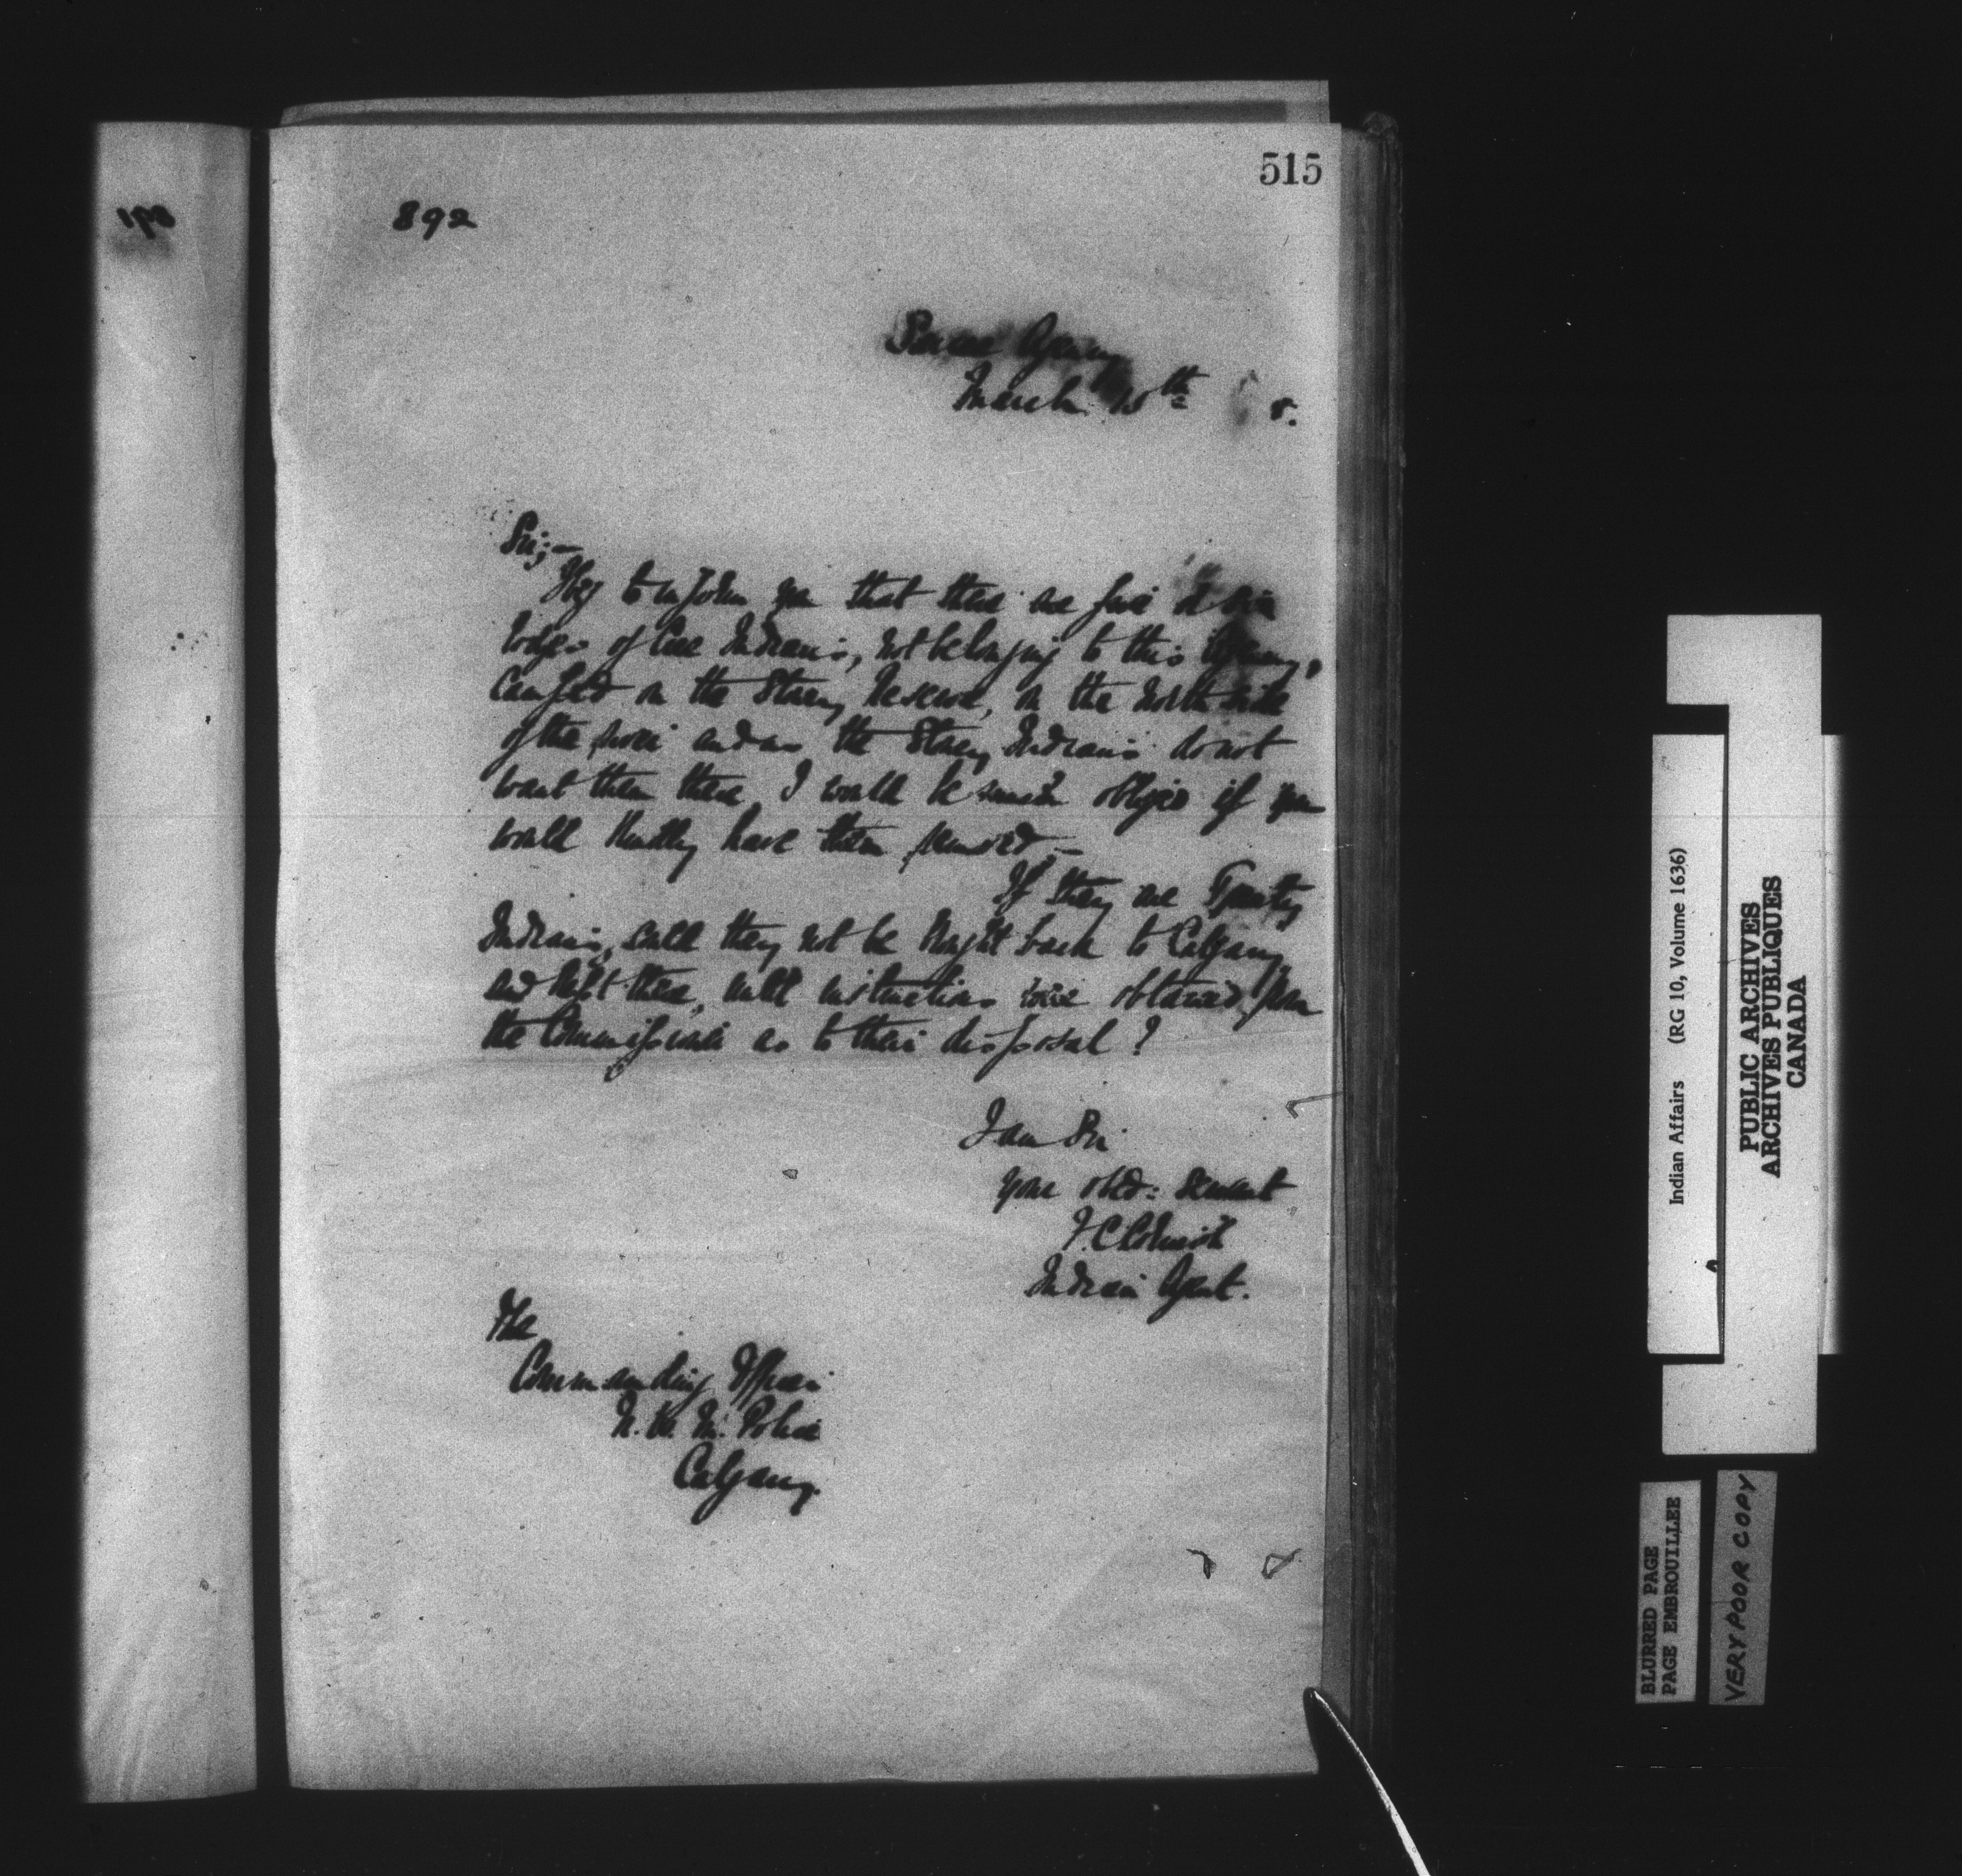 515
892
Sarcee Agency
March 10th 8.
Sir;—
I beg to inform you that there are five or six
lodges of Cree Indians, not belonging to this Agency,
camped on the Stoney Reserve, on the North side
of the river and as the Stoney Indians do not
want them there I would be much obliged if you
would kindly have them removed.—
If they are Treaty
Indians, could they not be brought back to Calgary
and kept there, until instructions were obtained from
the Commissioner as to their disposal?
I am Sir
your obed: servant
Indian Agent.
The
Commanding Officer
N. W. M. Police
Calgary.
Indian Affairs (RG 10, Volume 1636)
PUBLIC ARCHIVES
ARCHIVES PUBLIQUES
CANADA
BLURRED PAGE
PAGE EMBROUILLEE
VERY POOR COPY